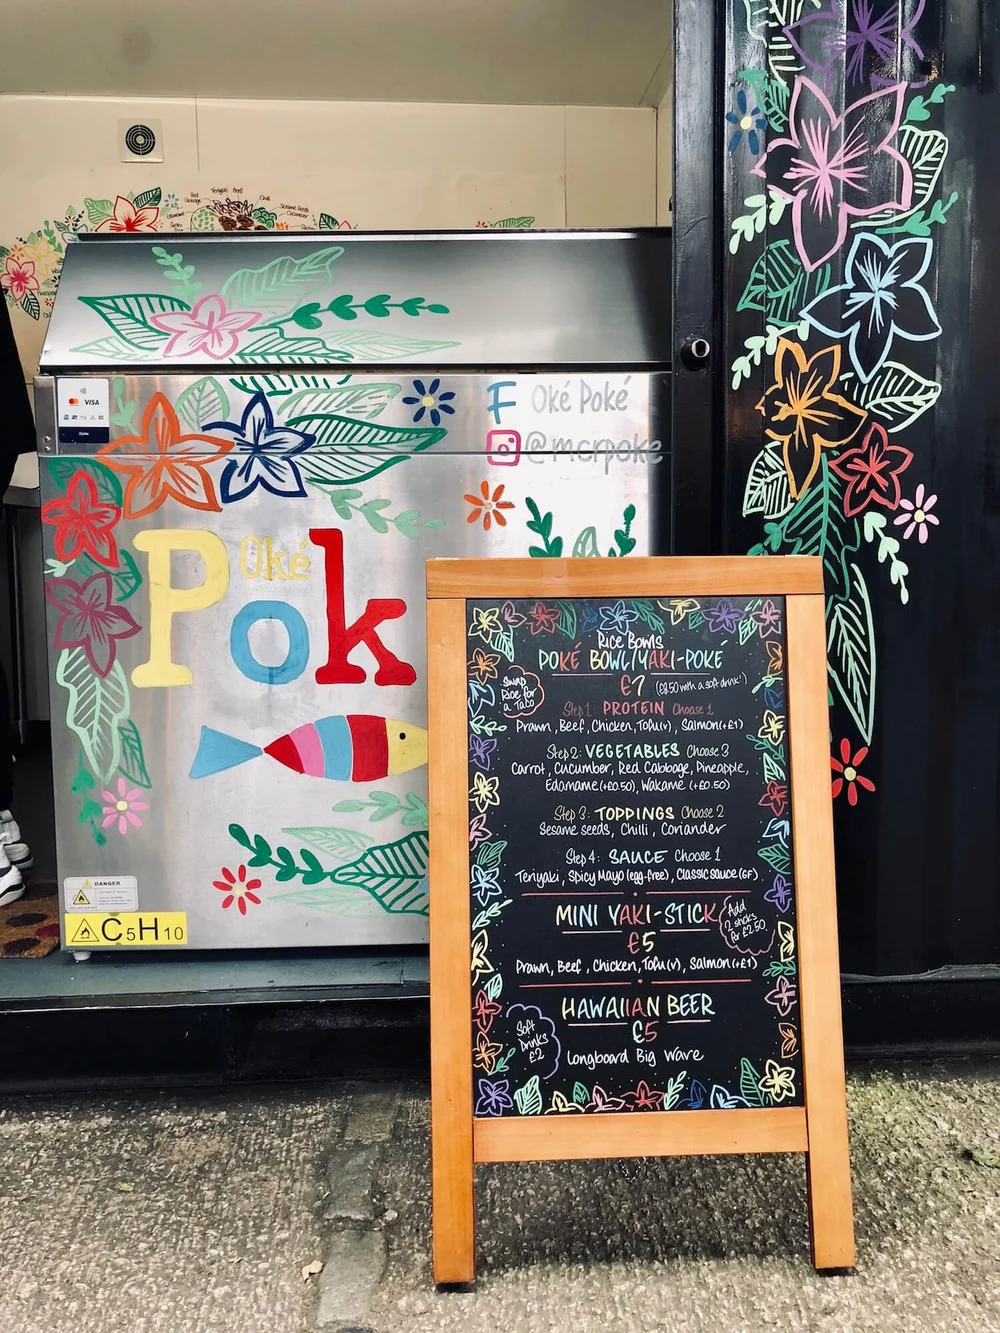 Teriyaki Beef
Red Cabbage
Chilli
Sesame Seeds
Cucumber
VISA
F Oké Poké
@mcrpoke
Oké
Pok
DANGER
C5H10
Rice Bowls
POKÉ BOWL/YAKI-POKE
£7 (£8.50 with a soft drink!)
Swap
Rice for
a Taco
Step 1: PROTEIN Choose 1
Prawn, Beef, Chicken, Tofu(v), Salmon(+£1)
Step 2: VEGETABLES Choose 3
Carrot, Cucumber, Red Cabbage, Pineapple,
Edamame (+£0.50), Wakame (+£0.50)
Step 3: TOPPINGS Choose 2
Sesame seeds, Chilli, Coriander
Step 4: SAUCE Choose 1
Teriyaki, Spicy Mayo (egg-free), Classic sauce (GF)
MINI YAKI-STICK
£5
Add
2 sticks
for £2.50
Prawn, Beef, Chicken, Tofu(v), Salmon(+£1)
HAWAIIAN BEER
£5
Soft
Drinks
£2
Longboard Big Wave